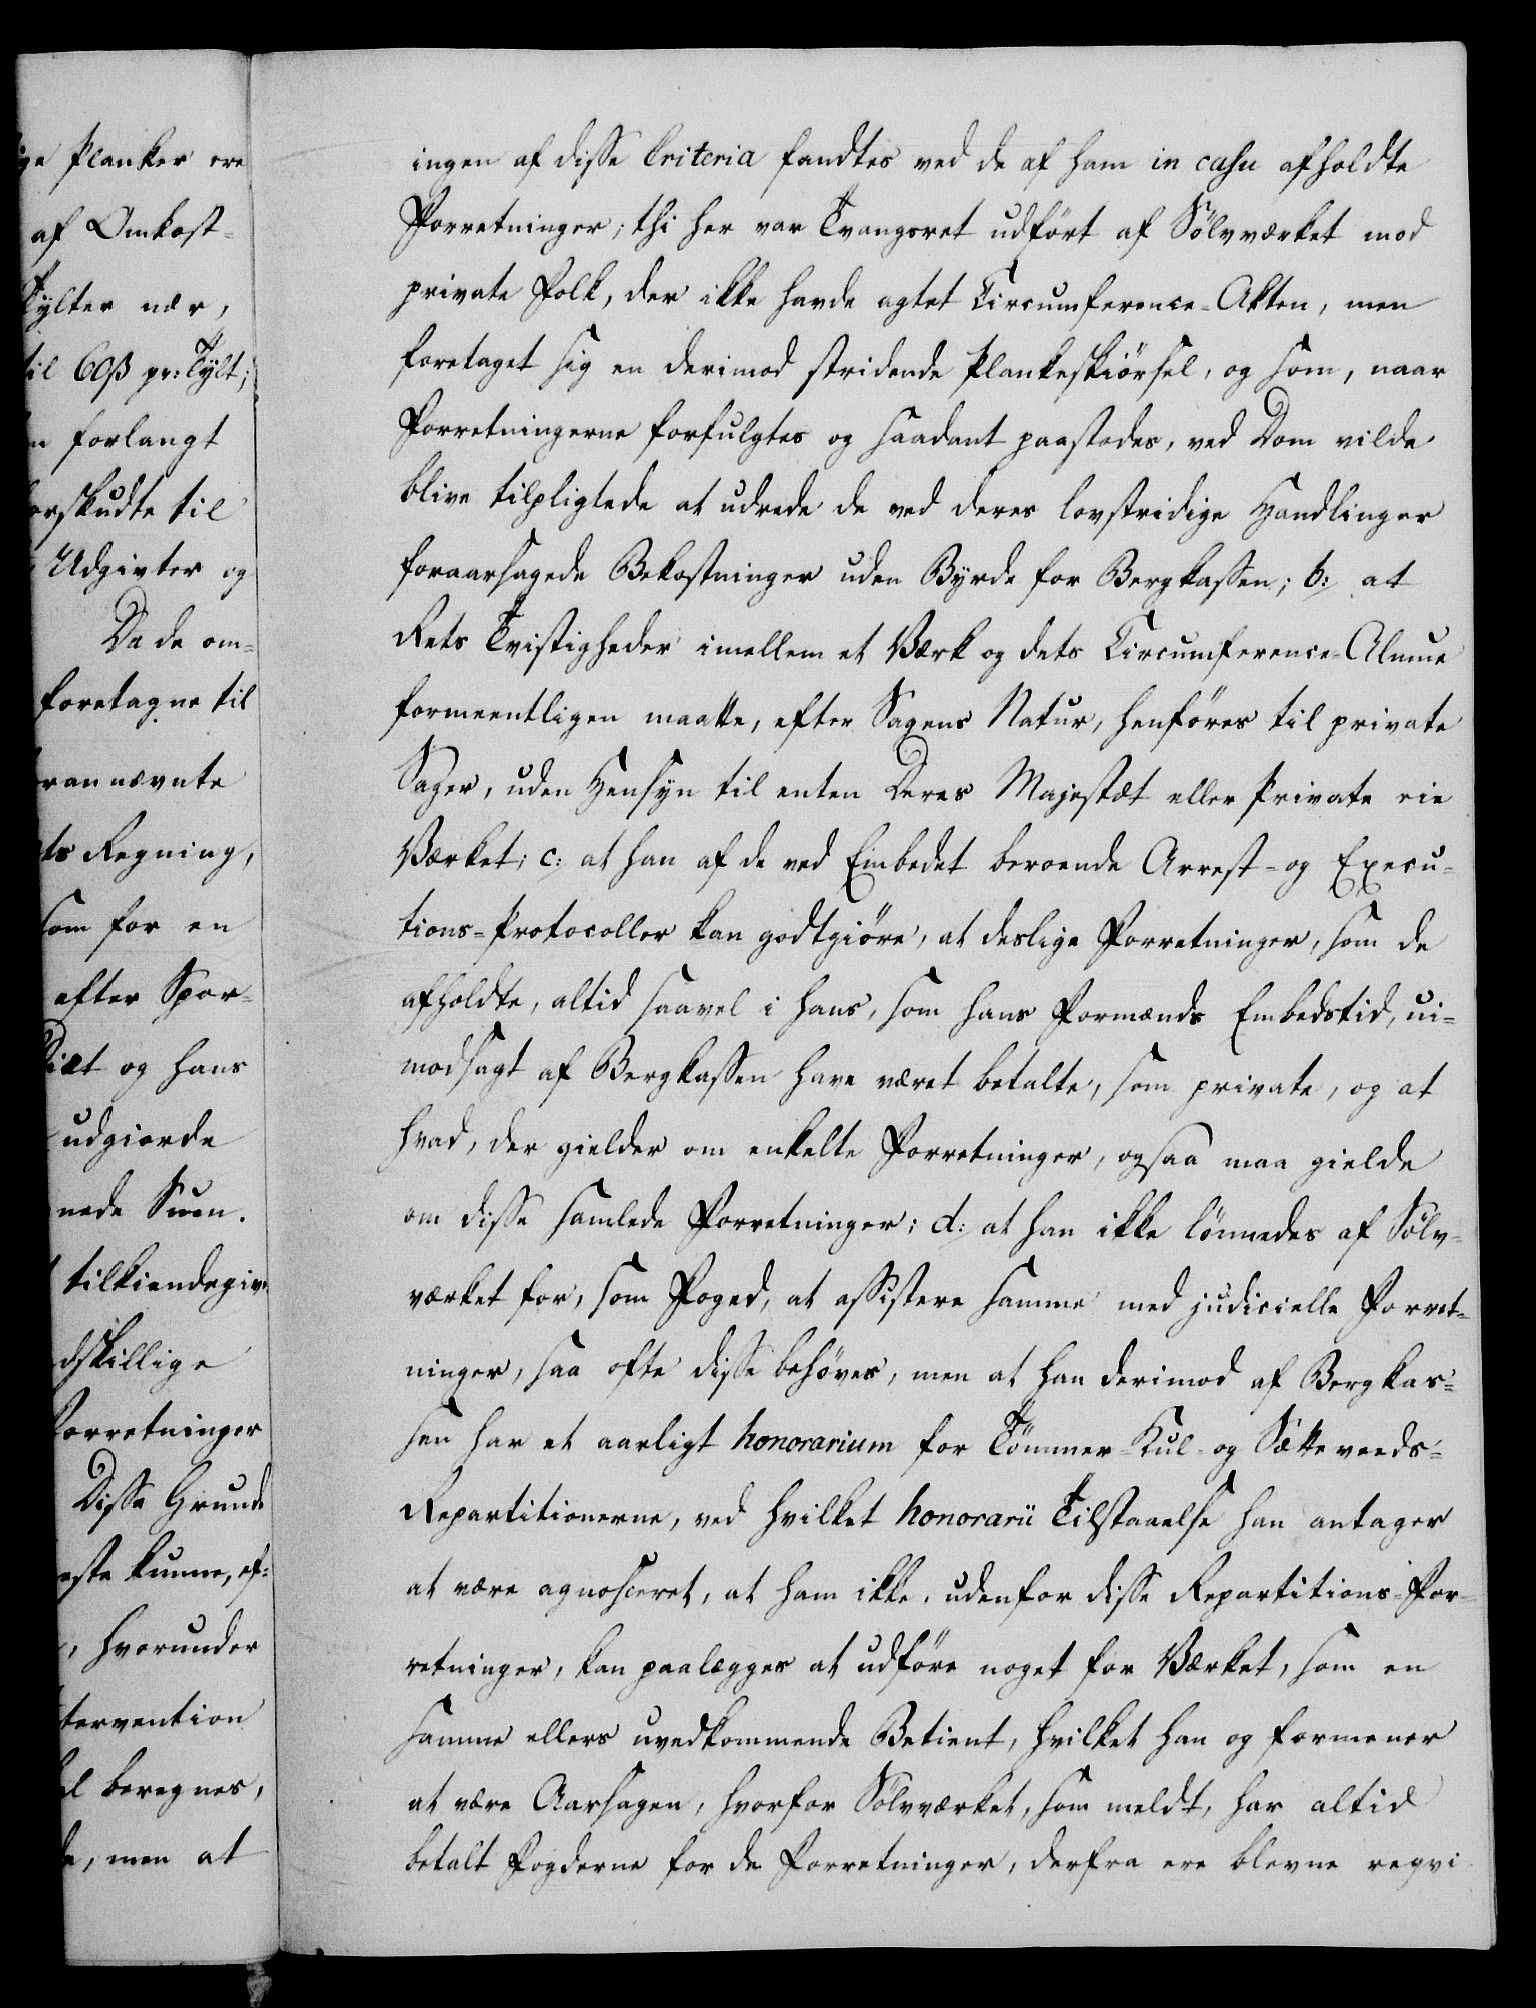 ge Planker ere
af Omkost-
Tylter nær,
til 60ß pr: Tylt;
n forlangt
orskudte til
Udgivter og
Da de om-
foretagne til
rannævnte
ts Regning,
som for en
efter Spor-
Diæt og hans
udgiorde
nede Sum.
tilkiendegiv-
dskillige
Forretninger
Disse Grunde
este kunne, ef-
, hvorunder
tervention
l beregnes,
e, men at
ingen af disse Criteria fandtes ved de af ham in casu afholdte
Forretninger; thi her var Tvangsret udført af Sölvværket mod
private Folk, der ikke havde agtet Circumference-Akten, men
foretaget sig en derimod stridende Plankeskiörsel, og som, naar
Forretningerne forfulgtes og saadant paastodes, ved Dom vilde
blive tilpligtede at udrede de ved deres lovstridige Handlinger
foraarsagede Bekostninger uden Byrde for Bergkassen; b: at
Rets Tvistigheder imellem et Værk og dets Circumference-Almue
formeentligen maatte, efter Sagens Natur, henföres til private
Sager, uden Hensyn til enten Deres Majestæt eller Private eie
Værket; c: at han af de ved Embedet beroende Arrest- og Execu-
tions-Protocoller kan godtgiöre, at deslige Forretninger, som de
afholdte, altid saavel i hans, som hans Formænds Embedstid, ui-
modsagt af Bergkassen have været betalte, som private, og at
hvad, der gielder om enkelte Forretninger, ogsaa maa gielde
om disse samlede Forretninger; d: at han ikke lönnedes af Sölv-
værket for, som Foged, at assistere samme med judicielle Forret-
ninger, saa ofte disse behöves, men at han derimod af Bergkas-
sen har et aarligt honorarium for Tömmer- Kul- og Sætteveeds-
Repartitionerne, ved hvilket honorarii Tilstaaelse han antager
at være agnosceret, at ham ikke, udenfor disse Repartitions-For-
retninger, kan paalægges at udföre noget for Værket, som en
samme ellers uvedkommende Betient, hvilket han og formener
at være Aarsagen, hvorfor Sölvværket, som meldt, har altid
betalt Fogderne for de Forretninger, derfra ere blevne reqvi-